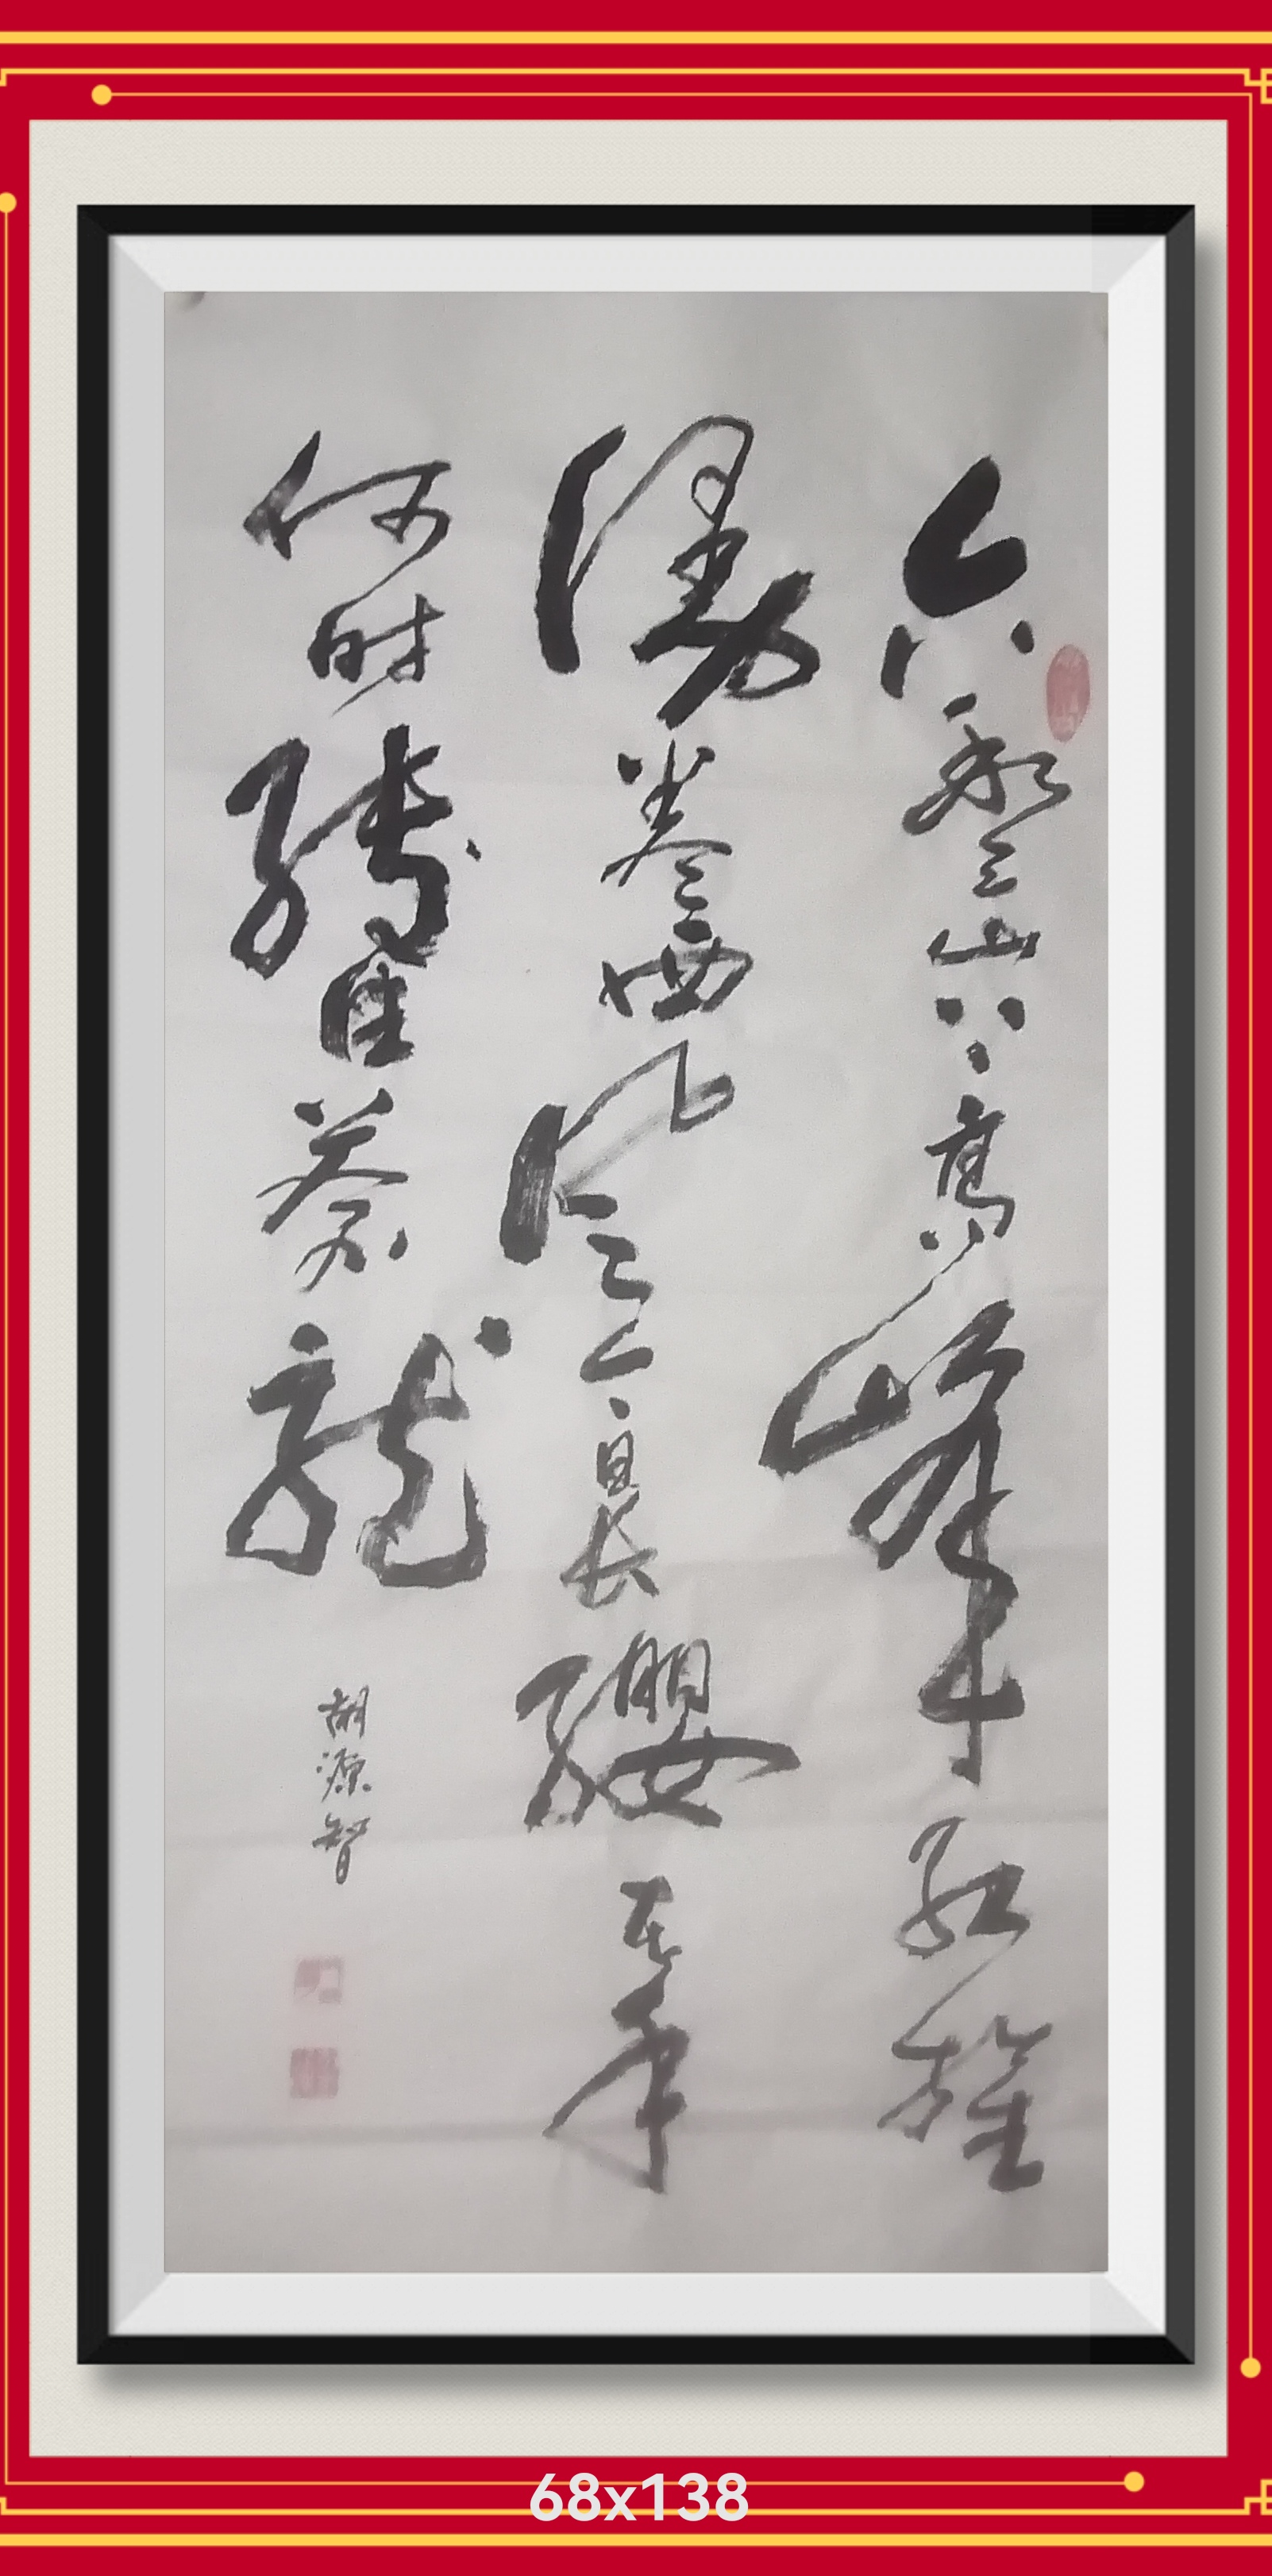 六盘山上高峰红旗
漫卷西风今日长缨在手
何时缚住苍龍
胡源智
68x138